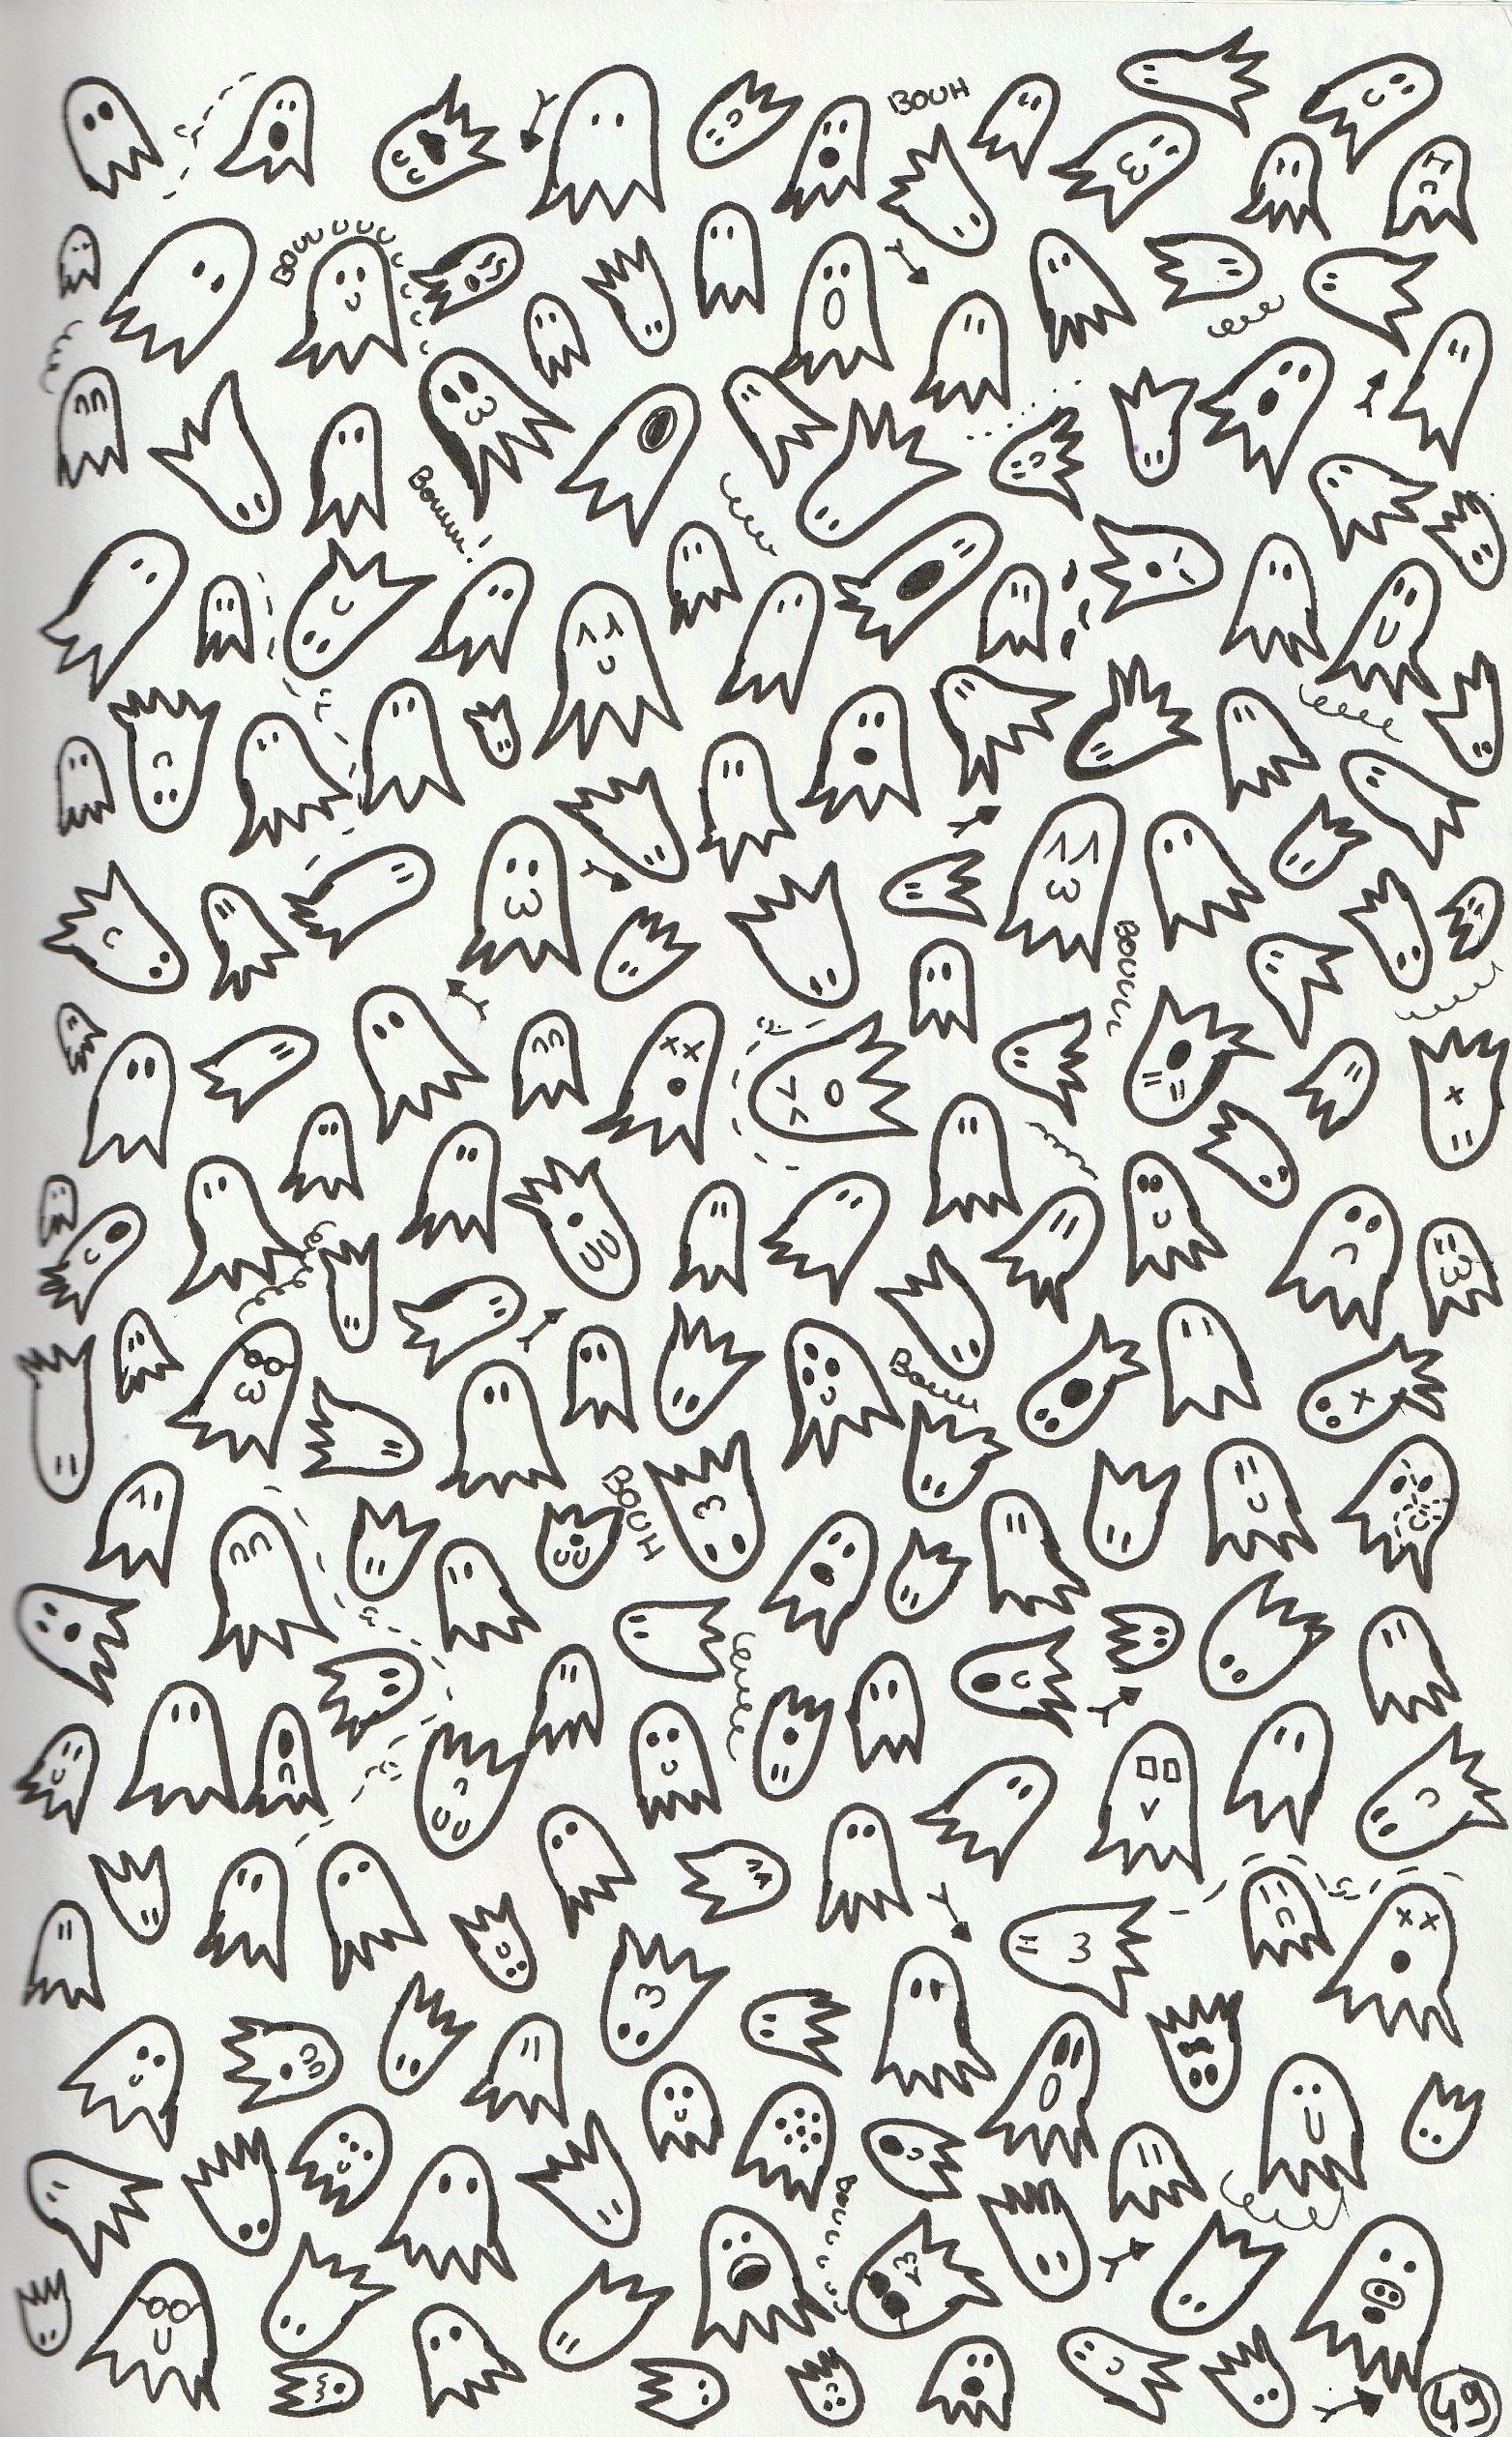 BOUH
BOUUUUUU
Bouuuu!
BOUUUU
Bouuuu
BOUH
Bouu
49